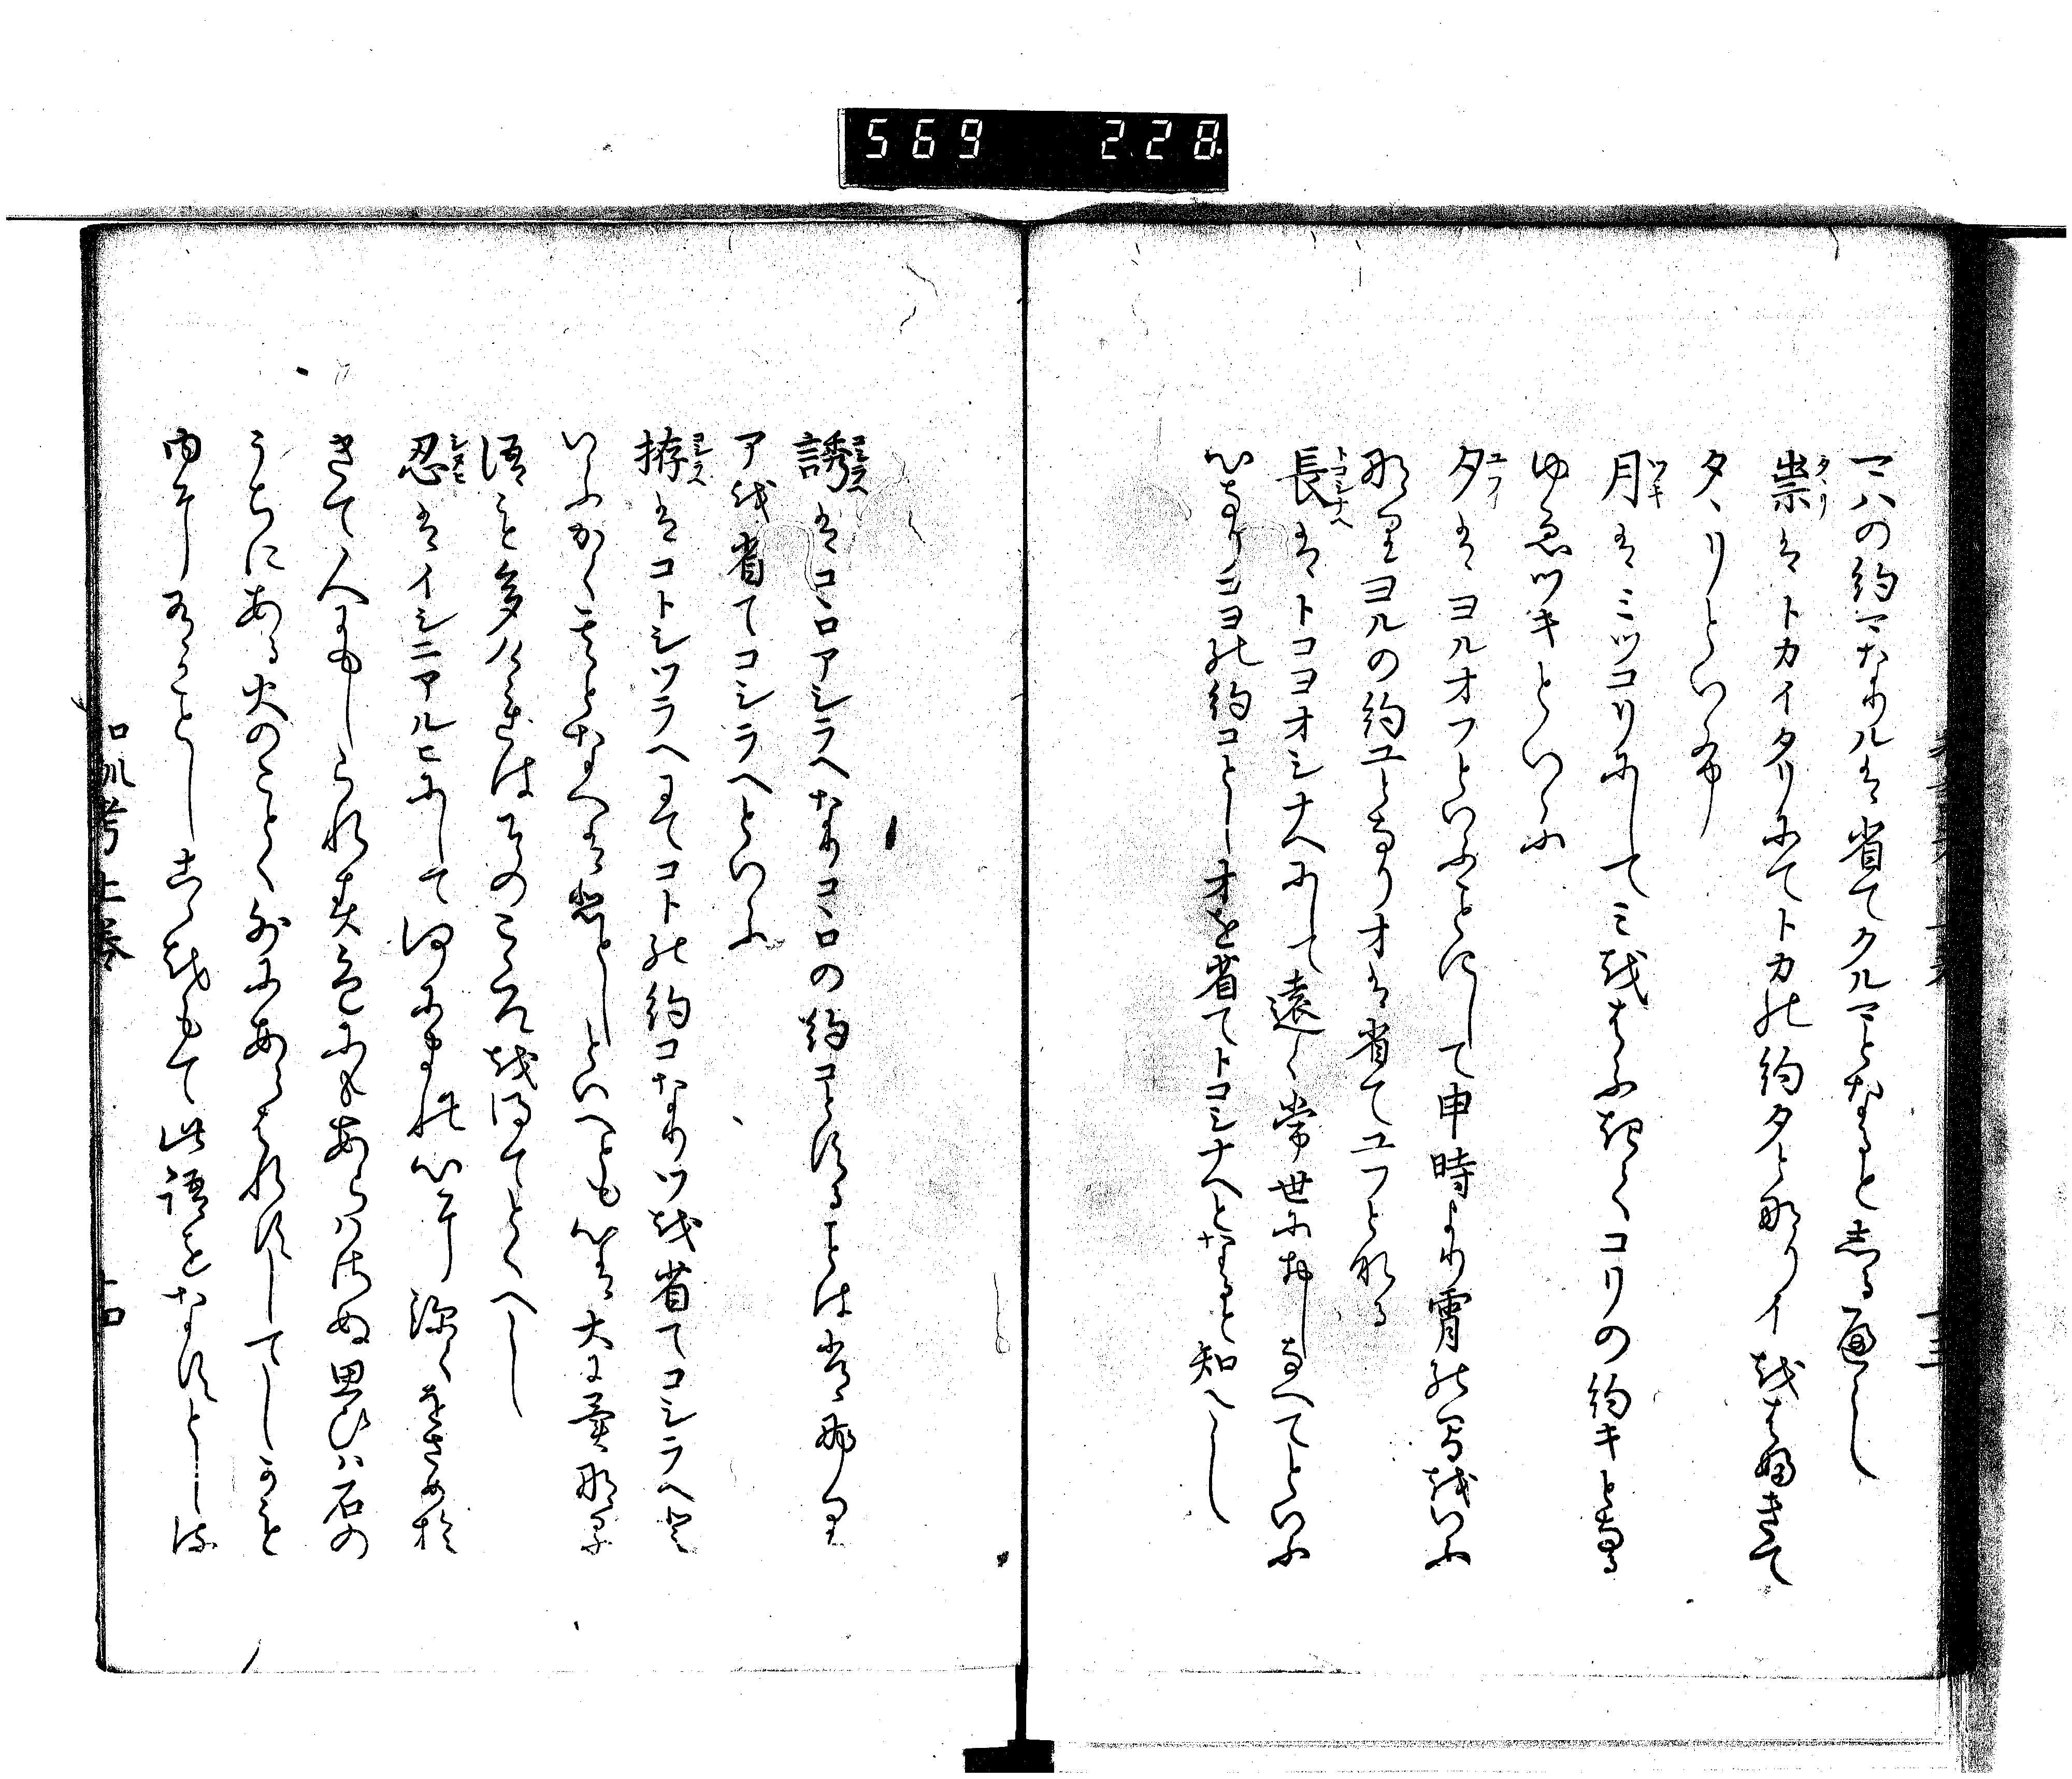 569 228
マハの約マなりルは省てクルマとなると志る遍し
祟はトカイタリにてトカの約タと那りイをはふきて
タヽリといふ也
月はミツコリにしてミをはふきコリの約キとなる
ゆゑツキといふ
夕はヨルオフといふことにして申時より宵の間をいふ
那里ヨルの約ユとなりオは省てユフとなる
長はトコヨオシナヘにして遠く常世におしなへてといふ
心なりコヨの約コとしオを省てトコシナヘとなると知へし
誘はコヽロアシラヘなりコヽロの約コとすることは常那里
アを省てコシラヘといふ
拵はコトシツラヘにてコトの約コなりツを省てコシラヘと
いふかくことなへは悉としといへとも心は大に異那里
語を多くきはそのこゝろを得てとくへし
忍はイシニアルヒにして何にまれ心に深くをさめ於
きて人にもしられす色にもあらはさぬ思ひハ石の
うちにある火のことく外にあらはれすしてしかも
内に有ことしこゝをもて此語をなすとしは